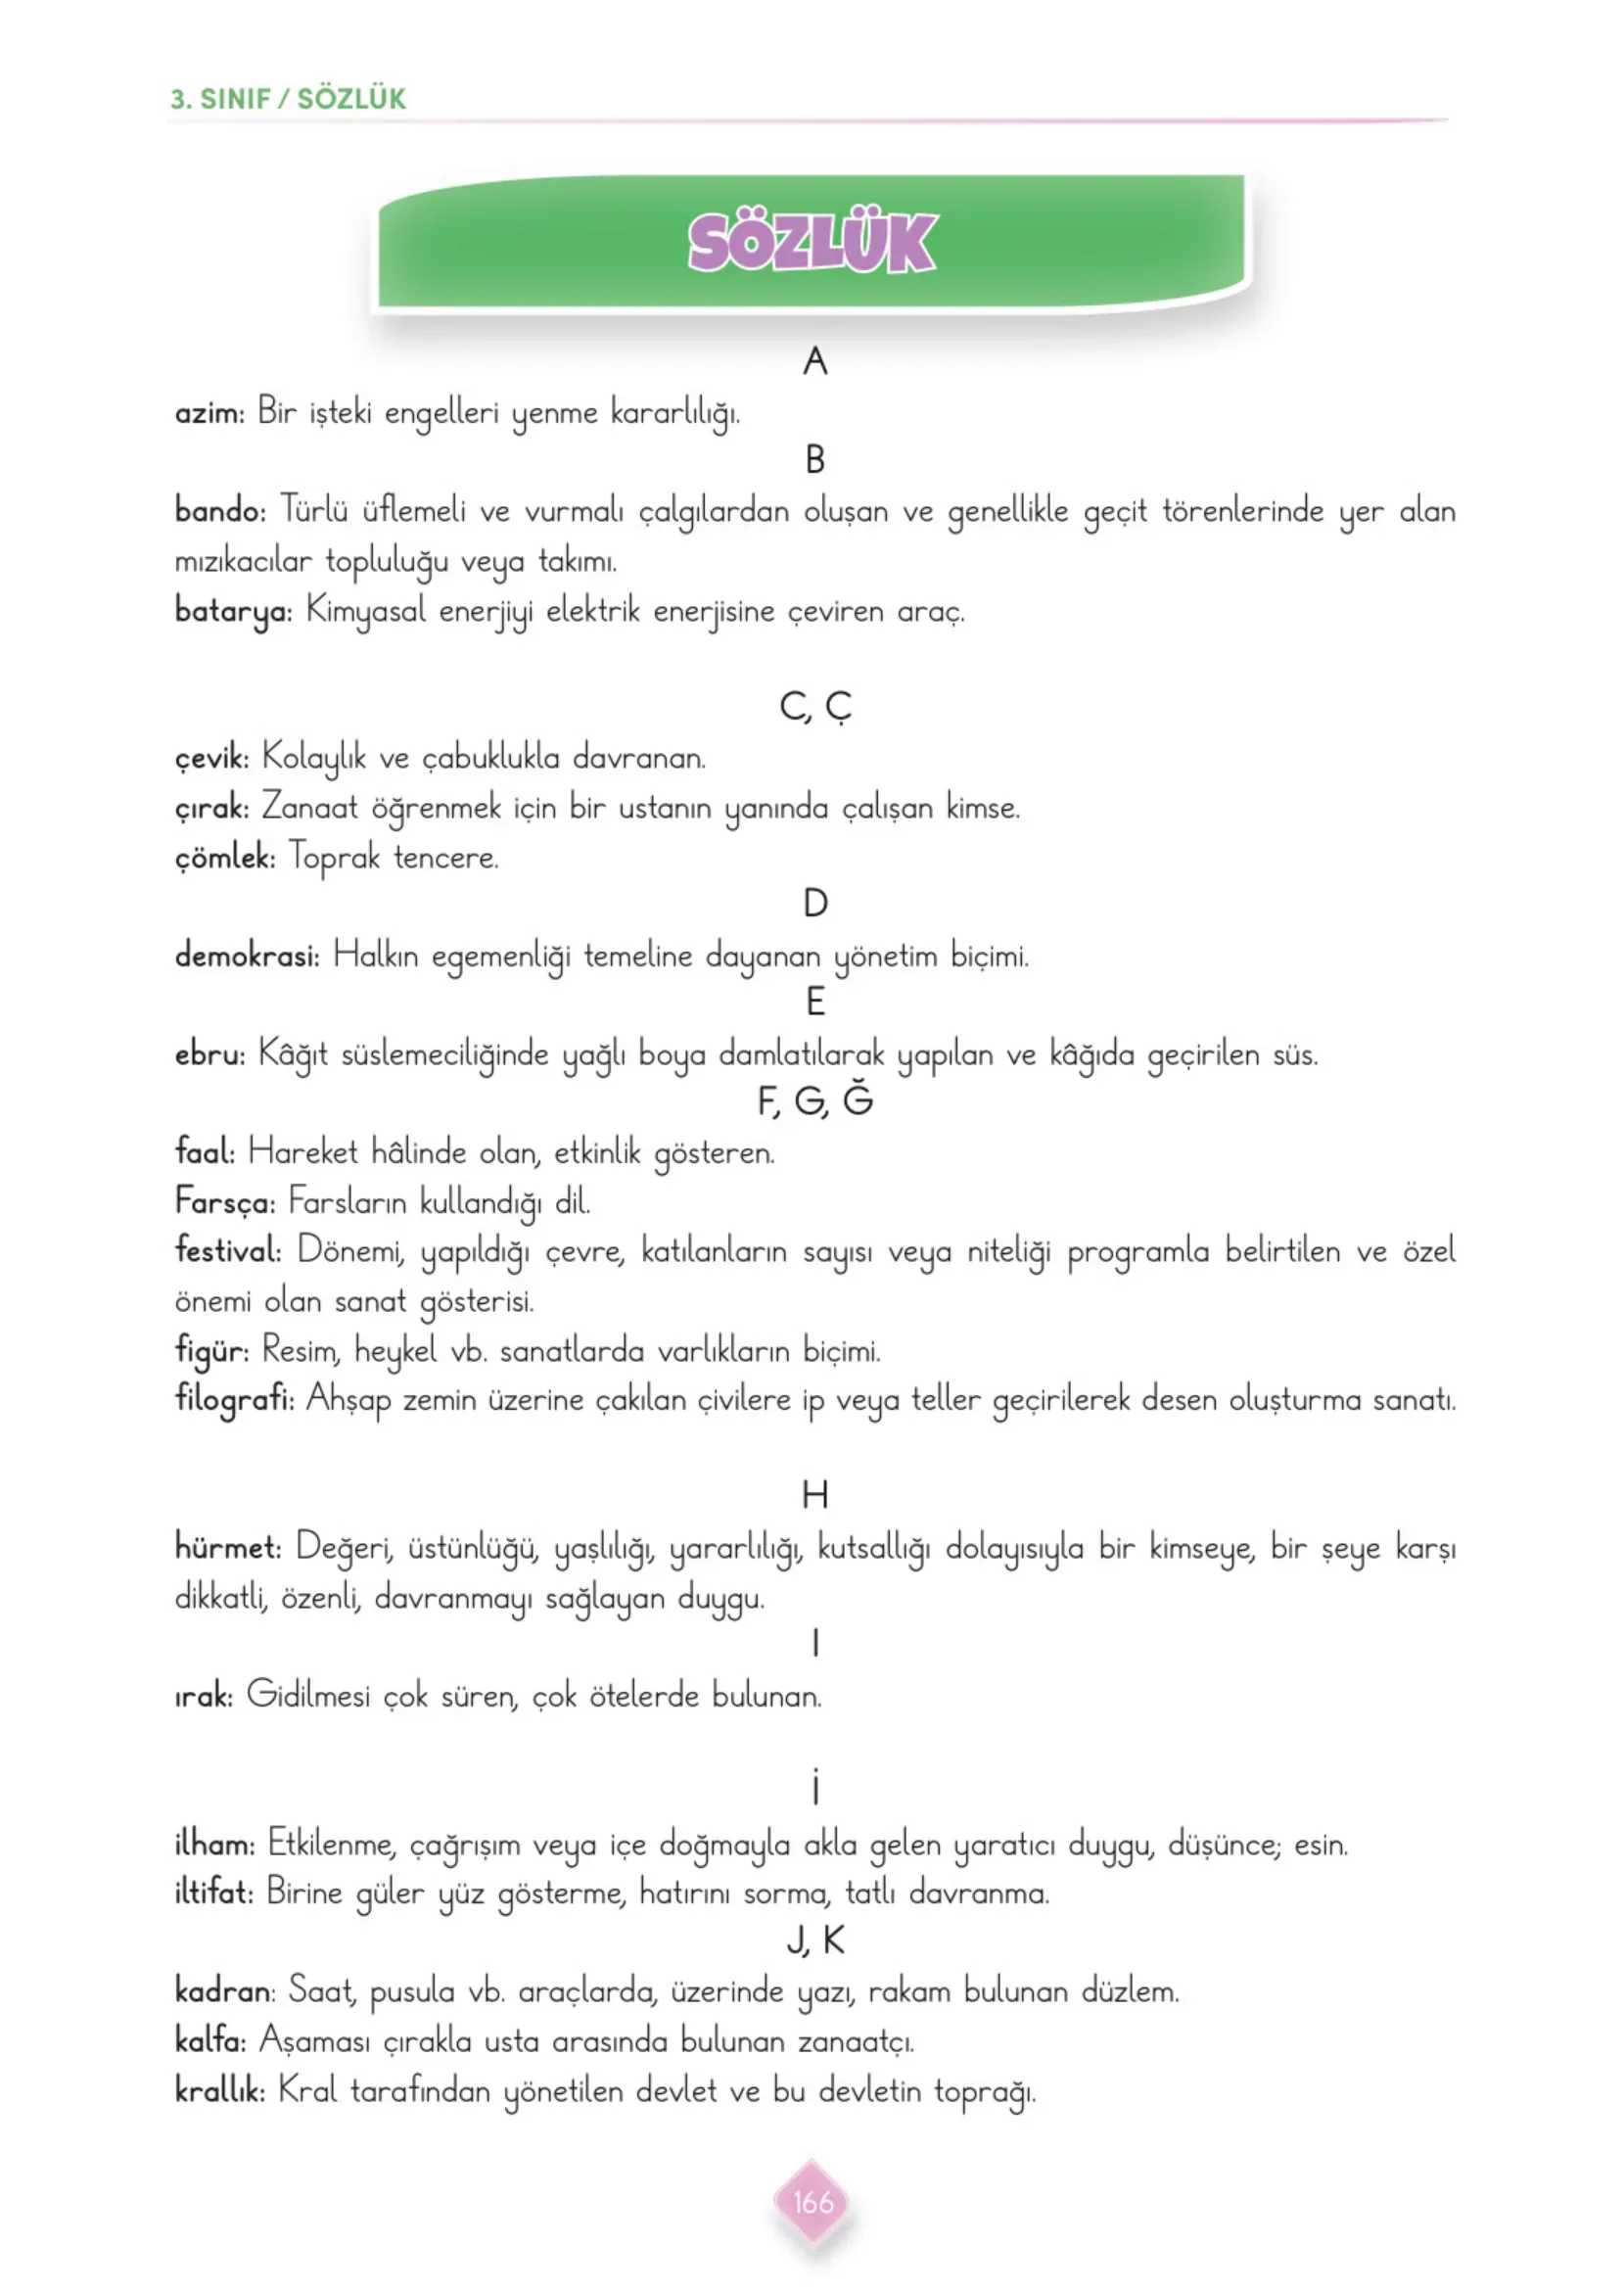 3. SINIF / SÖZLÜK
SÖZLÜK
A
azim: Bir işteki engelleri yenme kararlılığı.
B
bando: Türlü üflemeli ve vurmalı çalgılardan oluşan ve genellikle geçit törenlerinde yer alan
mızıkacılar topluluğu veya takımı.
batarya: Kimyasal enerjiyi elektrik enerjisine çeviren araç.
C, Ç
çevik: Kolaylık ve çabuklukla davranan.
çırak: Zanaat öğrenmek için bir ustanın yanında çalışan kimse.
çömlek: Toprak tencere.
D
demokrasi: Halkın egemenliği temeline dayanan yönetim biçimi.
E
ebru: Kâğıt süslemeciliğinde yağlı boya damlatılarak yapılan ve kâğıda geçirilen süs.
F, G, Ğ
faal: Hareket hâlinde olan, etkinlik gösteren.
Farsça: Farsların kullandığı dil.
festival: Dönemi, yapıldığı çevre, katılanların sayısı veya niteliği programla belirtilen ve özel
önemi olan sanat gösterisi.
figür: Resim, heykel vb. sanatlarda varlıkların biçimi.
filografi: Ahşap zemin üzerine çakılan çivilere ip veya teller geçirilerek desen oluşturma sanatı.
H
hürmet: Değeri, üstünlüğü, yaşlılığı, yararlılığı, kutsallığı dolayısıyla bir kimseye, bir şeye karşı
dikkatli, özenli, davranmayı sağlayan duygu.
I
ırak: Gidilmesi çok süren, çok ötelerde bulunan.
İ
ilham: Etkilenme, çağrışım veya içe doğmayla akla gelen yaratıcı duygu, düşünce; esin.
iltifat: Birine güler yüz gösterme, hatırını sorma, tatlı davranma.
J, K
kadran: Saat, pusula vb. araçlarda, üzerinde yazı, rakam bulunan düzlem.
kalfa: Aşaması çırakla usta arasında bulunan zanaatçı.
krallık: Kral tarafından yönetilen devlet ve bu devletin toprağı.
166